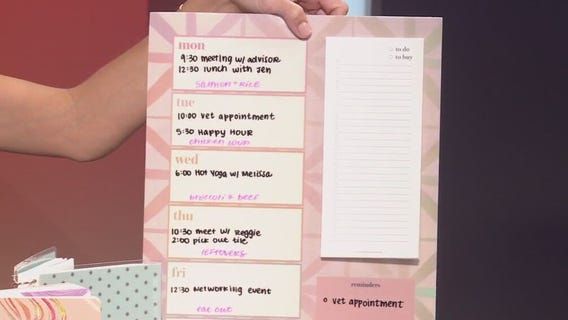 mon
9:30 meeting w/ advisor
12:30 lunch with Jen
salmon + rice
tue
10:00 vet appointment
5:30 Happy Hour
chicken soup
wed
6:00 Hot Yoga w/ Melissa
broccoli + beef
thu
10:30 meet w/ Reggie
2:00 pick out tile
leftovers
fri
12:30 Networking event
eat out
to do
to buy
reminders
o vet appointment